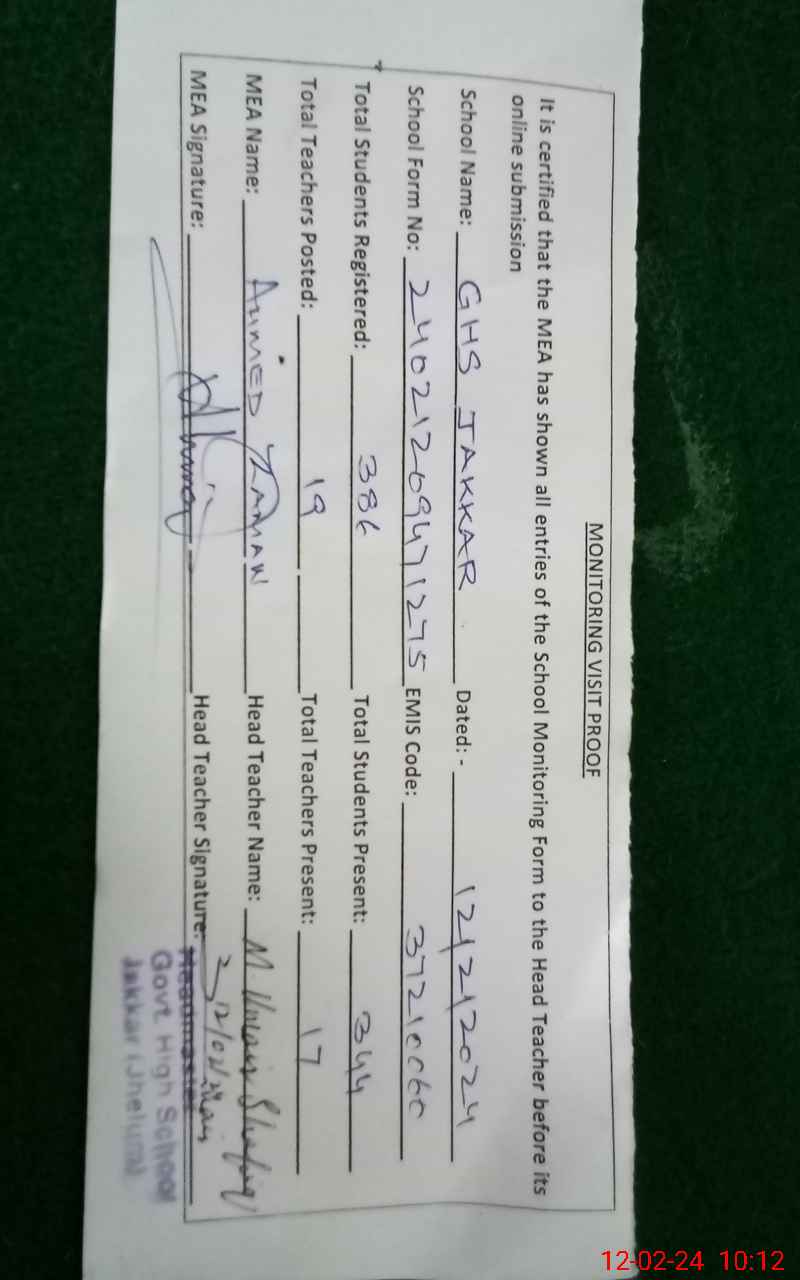 MONITORING VISIT PROOF
It is certified that the MEA has shown all entries of the School Monitoring Form to the Head Teacher before its
online submission
School Name: GHS JAKKAR Dated: - 12/2/2024
School Form No: 24021209471275 EMIS Code: 37210060
Total Students Registered: 386 Total Students Present: 344
Total Teachers Posted: 19 Total Teachers Present: 17
MEA Name: AHMED ZAMAN Head Teacher Name: M Umair Shafiq
MEA Signature: Head Teacher Signature:
12/02/
Headmaster
Govt. High School
Jakkar (Jhelum)
12-02-24 10:12